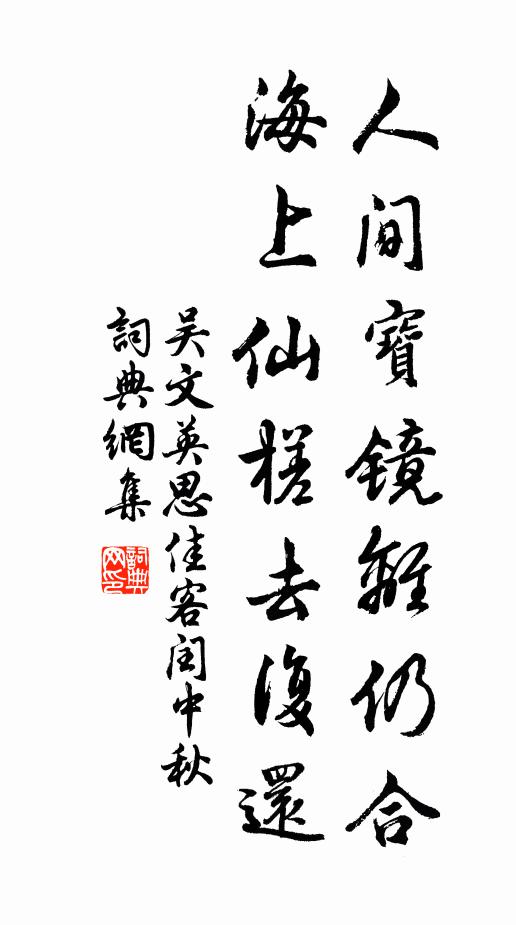 人間寶鏡離仍合
海上仙槎去復還
吴文英思佳客閏中秋
詞典網集
詞典網印